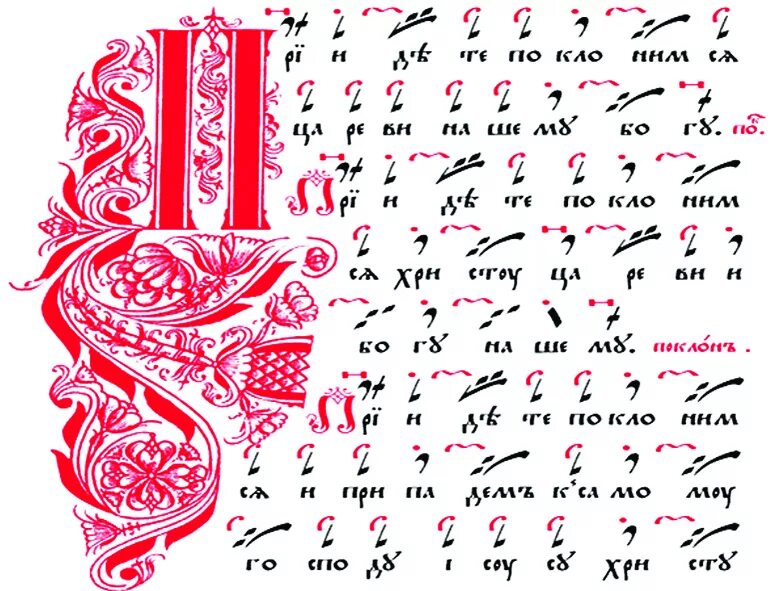 Прї и дѣ те по кло ним сѧ
ца ре ви на ше мꙋ бо гꙋ. по̑.
Прї и дѣ те по кло ним
сѧ хри стоу ца ре ви и
бо гꙋ на ше мꙋ. покло́нъ.
Прї и дѣ те по кло ним
сѧ и при па демъ к̾са мо моу
го спо дꙋ і соу сꙋ хри стꙋ